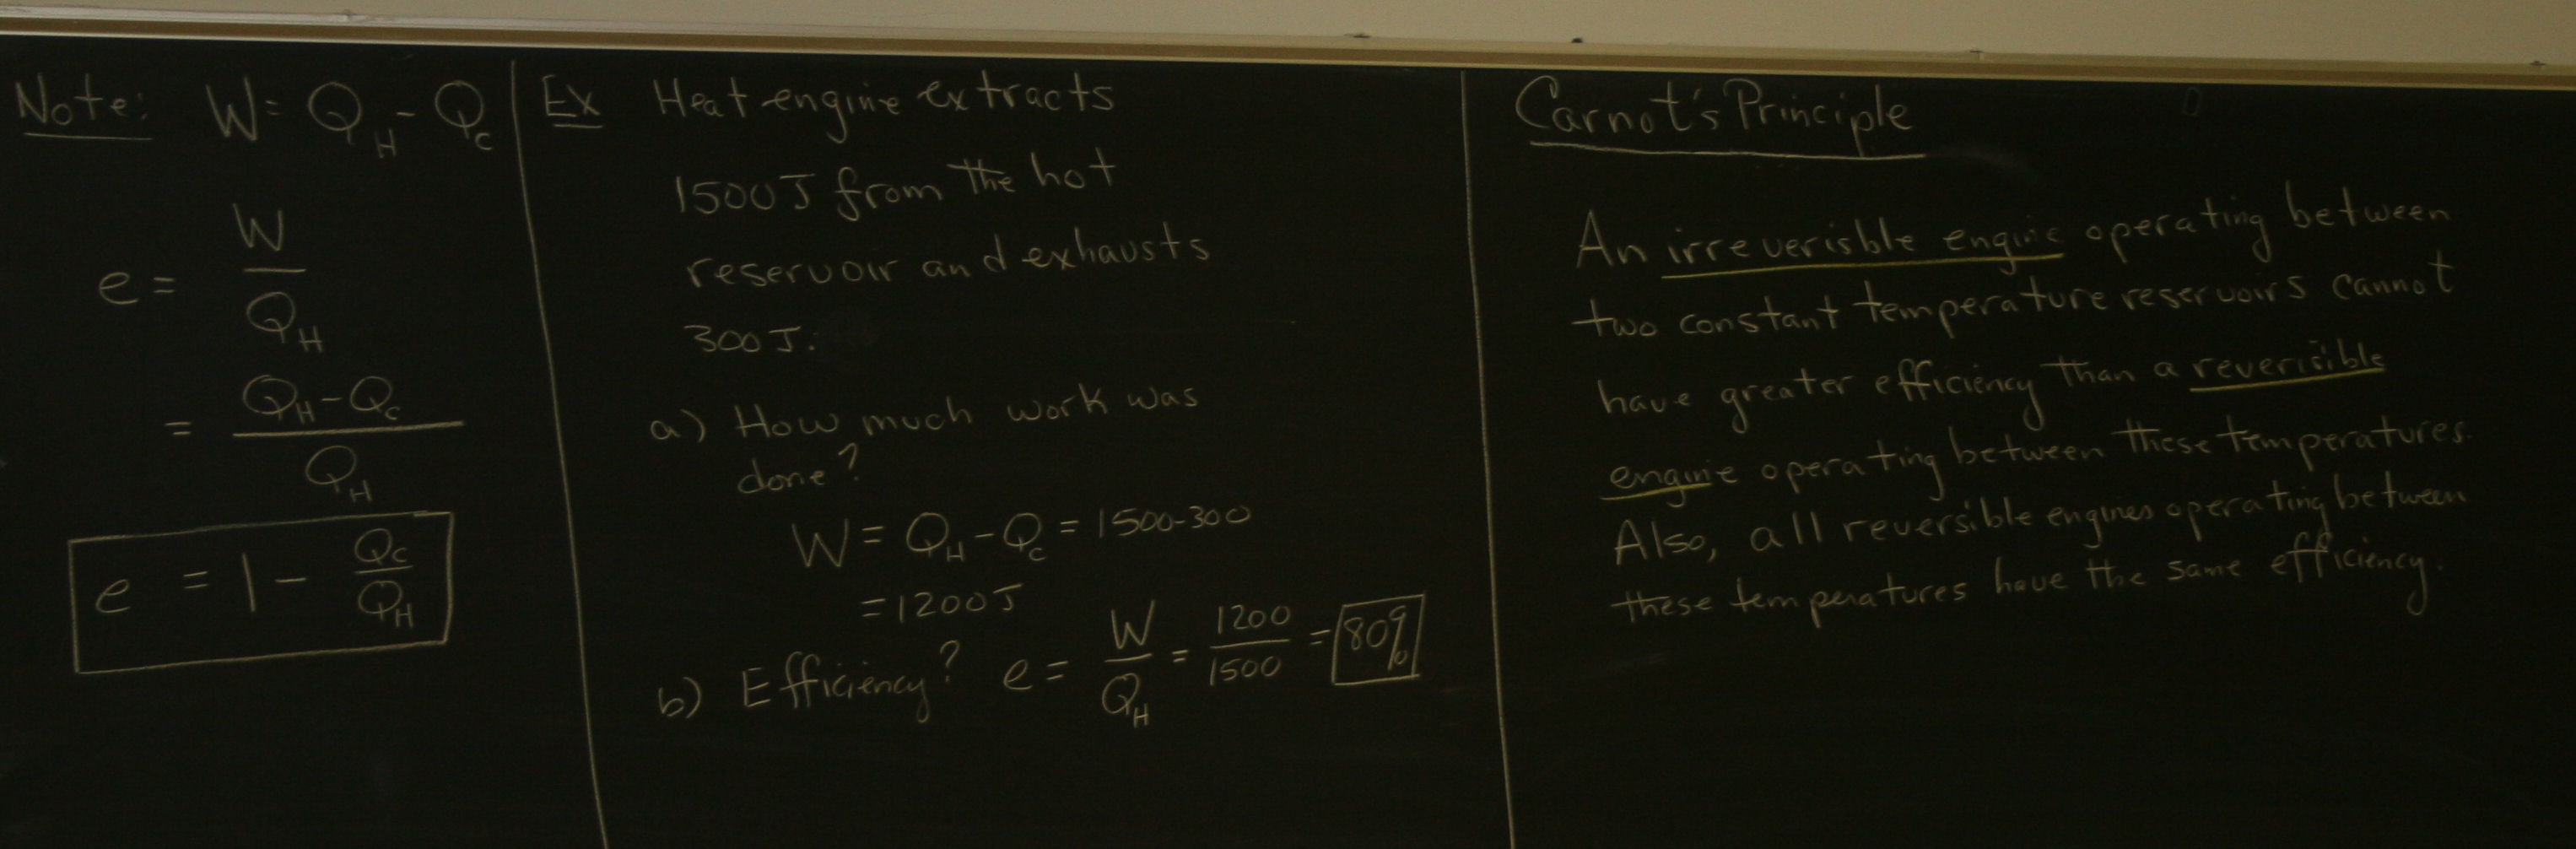 Note: W = Q_H - Q_C
e = W / Q_H
= Q_H - Q_C / Q_H
e = 1 - Q_C / Q_H
Ex Heat engine extracts
1500J from the hot
reservoir and exhausts
300J.
a) How much work was
done?
W = Q_H - Q_C = 1500-300
= 1200J
b) Efficiency? e = W / Q_H = 1200 / 1500 = 80%
Carnot's Principle
An irreverisble engine operating between
two constant temperature reservoirs cannot
have greater efficiency than a reverisible
engine operating between these temperatures.
Also, all reversible engines operating between
these temperatures have the same efficiency.